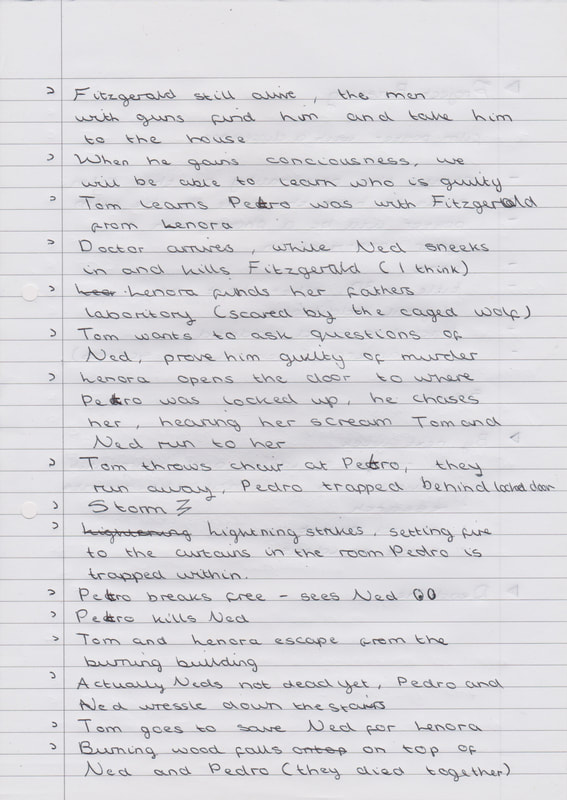 > Fitzgerald still alive, the men
with guns find him and take him
to the house
> When he gains conciousness, we
will be able to learn who is guilty
> Tom learns Pedro was with Fitzgerald
from Lenora
> Doctor arrives, while Ned sneeks
in and kills Fitzgerald (I think)
> Lenora finds her fathers
laboritory (scared by the caged wolf)
> Tom wants to ask questions of
Ned, prove him guilty of murder
> Lenora opens the door to where
Pedro was locked up, he chases
her, hearing her scream Tom and
Ned run to her
> Tom throws chair at Pedro, they
run away, Pedro trapped behind locked door
> Storm
> Lightning strikes, setting fire
to the curtains in the room Pedro is
trapped within.
> Pedro breaks free - sees Ned
> Pedro kills Ned
> Tom and Lenora escape from the
burning building
> Actually Neds not dead yet, Pedro and
Ned wressle down the stairs
> Tom goes to save Ned for Lenora
> Burning wood falls ontop on top of
Ned and Pedro (they died together)